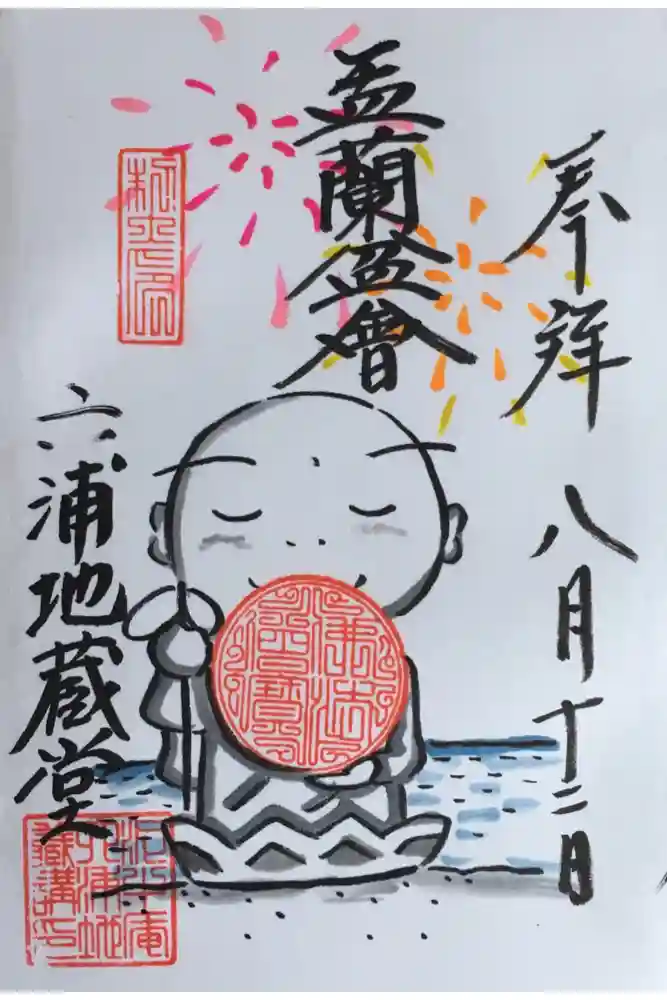 奉拝
八月十二日
盂蘭盆會
六浦地蔵堂
佛法僧寳